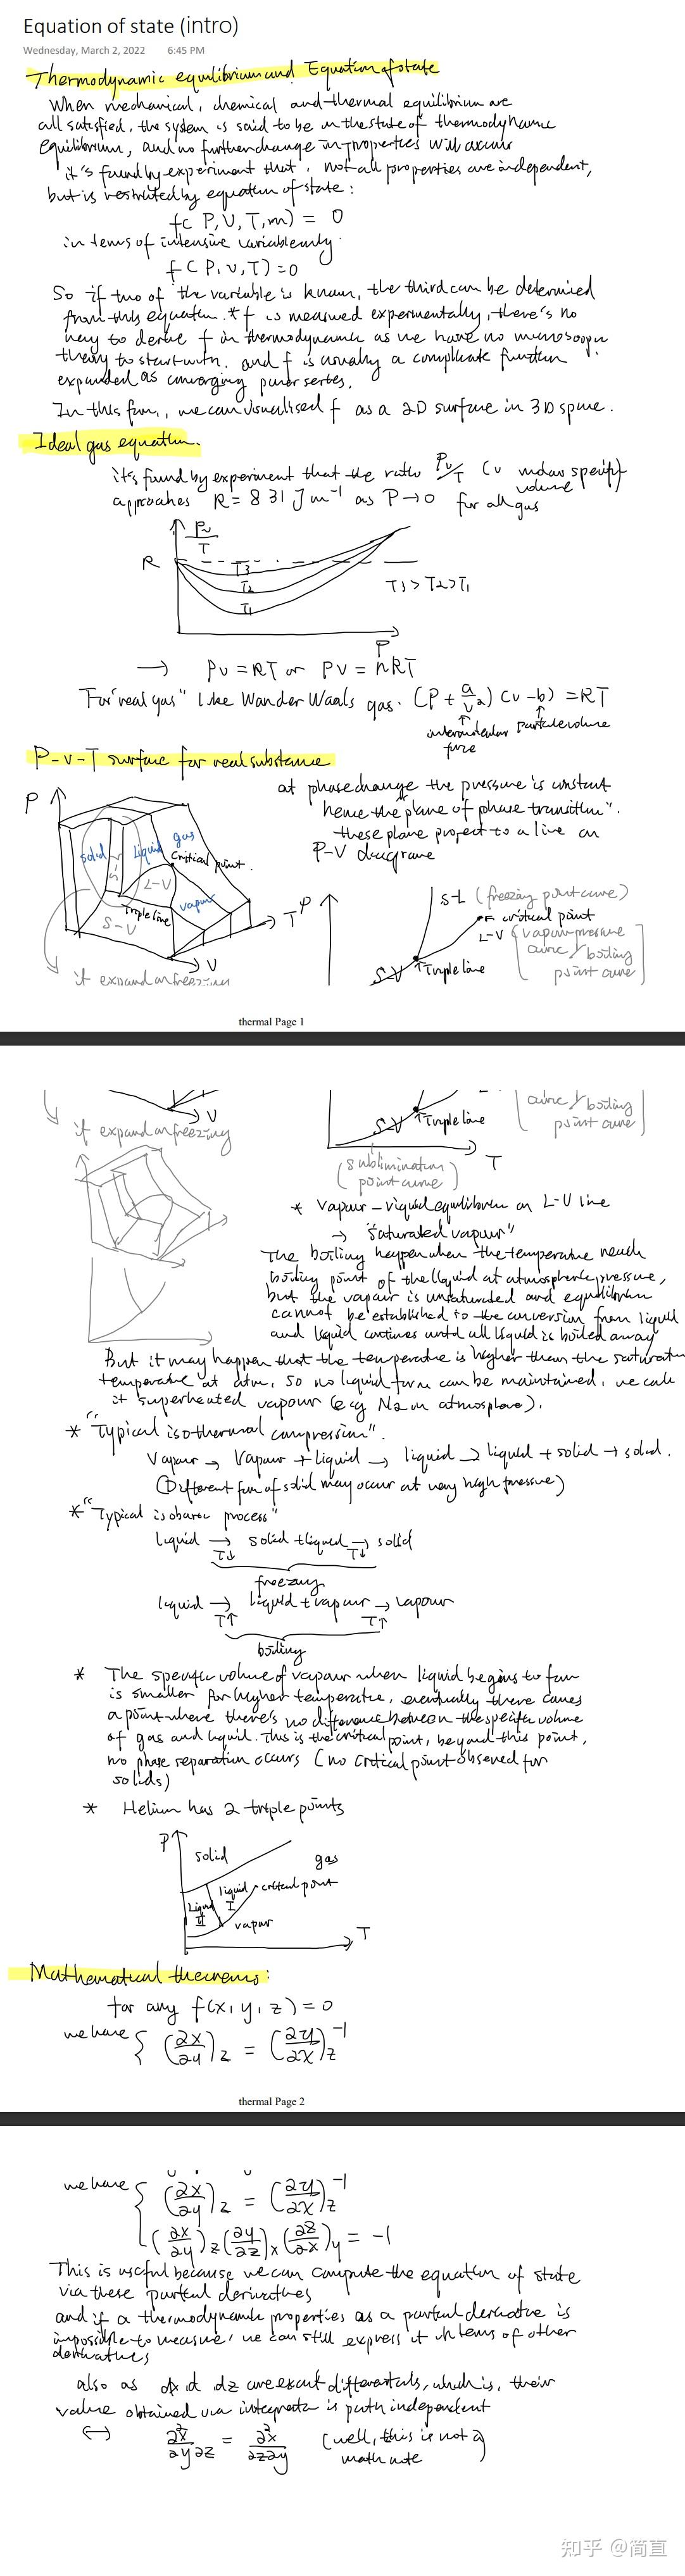 Equation of state (intro)
Wednesday, March 2, 2022 6:45 PM
Thermodynamic equilibrium and Equation of state
When mechanical, chemical and thermal equilibrium are
all satisfied, the system is said to be in the state of thermodynamic
equilibrium, and no further change in properties will occur
it's found by experiment that, not all properties are independent,
but is restricted by equation of state:
f(P, V, T, m) = 0
in terms of intensive variable only
f(P, v, T) = 0
So if two of the variable is known, the third can be determined
from this equation. * f is measured experimentally, there's no
way to derive f in thermodynamic as we have no microscopic
theory to start with. and f is usually a complicate function
expanded as converging power series.
In this form, we can visualised f as a 2D surface in 3D space.
Ideal gas equation.
it's found by experiment that the ratio Pv/T (v molar specific volume
approaches R = 8.31 J m⁻¹ as P→0 for all gas
Pv/T
R
T3
T2
T1
T3 > T2 > T1
P
→ Pv = RT or PV = nRT
For "real gas" like Wander Waals gas. (P + a/v²)(v-b) = RT
intermolecular force
particle volume
P-v-T surface for real substance
at phase change the pressure is constant
hence the "plane of phase transition".
these plane project to a line on
P-V diagrame
P
solid
S-L
liquid
gas
critical point
L-V
vapour
Triple line
S-V
T
V
it expand on freezing
P
S-L (freezing point curve)
critical point
L-V (vapour pressure curve / boiling point curve)
S-V
Triple line
thermal Page 1
V
it expand on freezing
S-V
Triple line
curve / boiling
point curve
T
(sublimination point curve)
* Vapour - liquid equilibrium on L-V line
→ "saturated vapour"
The boiling happen when the temperature reach
boiling point of the liquid at atmospheric pressure,
but the vapair is unsaturated and equilibrium
cannot be established so the conversion from liquid
and liquid continues until all liquid is boiled away
But it may happen that the temperature is higher than the saturate
temperature at atm, so no liquid form can be maintained, we call
it superheated vapour (e.g N2 in atmosphere).
* "Typical isothermal compression".
Vapour → Vapour + liquid → liquid → liquid + solid → solid.
(Different form of solid may occur at very high pressure)
* "Typical isobaric process"
liquid → solid + liquid → solid
T↓ T↓
freezing
liquid → liquid + vapour → vapour
T↑ T↑
boiling
* The specific volume of vapour when liquid begins to form
is smaller for higher temperature, eventually there comes
a point where there's no difference between the specific volume
of gas and liquid. This is the critical point, beyond this point,
no phase separation occurs (no critical point observed for
solids)
* Helium has 2 triple points
P
solid
gas
liquid I
critical point
liquid II
vapour
T
Mathematical theorems:
for any f(x, y, z) = 0
we have { (∂x/∂y)z = (∂y/∂x)z⁻¹
thermal Page 2
we have { (∂x/∂y)z = (∂y/∂x)z⁻¹
(∂x/∂y)z (∂y/∂z)x (∂z/∂x)y = -1
This is useful because we can compute the equation of state
via these partial derivatives
and if a thermodynamic properties as a partial derivative is
impossible to measure, we can still express it in terms of other
derivatives
also as dx dz are exact differentials, which is, their
value obtained via integrate is path independent
↔ ∂²x/∂y∂z = ∂²x/∂z∂y (well, this is not a math note)
知乎 @简直